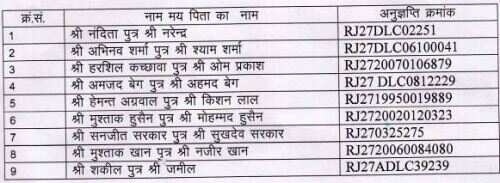 क्रं.सं. नाम मय पिता का नाम अनुज्ञप्ति क्रमांक
1 श्री नंदिता पुत्र श्री नरेन्द्र RJ27DLC02251
2 श्री अभिनव शर्मा पुत्र श्री श्याम शर्मा RJ27DLC06100041
3 श्री हरशिल कच्छावा पुत्र श्री ओम प्रकाश RJ2720070106879
4 श्री अमजद बेग पुत्र श्री अहमद बेग RJ27 DLC0812229
5 श्री हेमन्त अग्रवाल पुत्र श्री किशन लाल RJ2719950019889
6 श्री मुश्ताक हुसैन पुत्र श्री मोहम्मद हुसैन RJ2720020120323
7 श्री सनजीत सरकार पुत्र श्री सुखदेव सरकार RJ270325275
8 श्री मुश्ताक खान पुत्र श्री नजीर खान RJ2720060084080
9 श्री शकील पुत्र श्री जमील RJ27ADLC39239